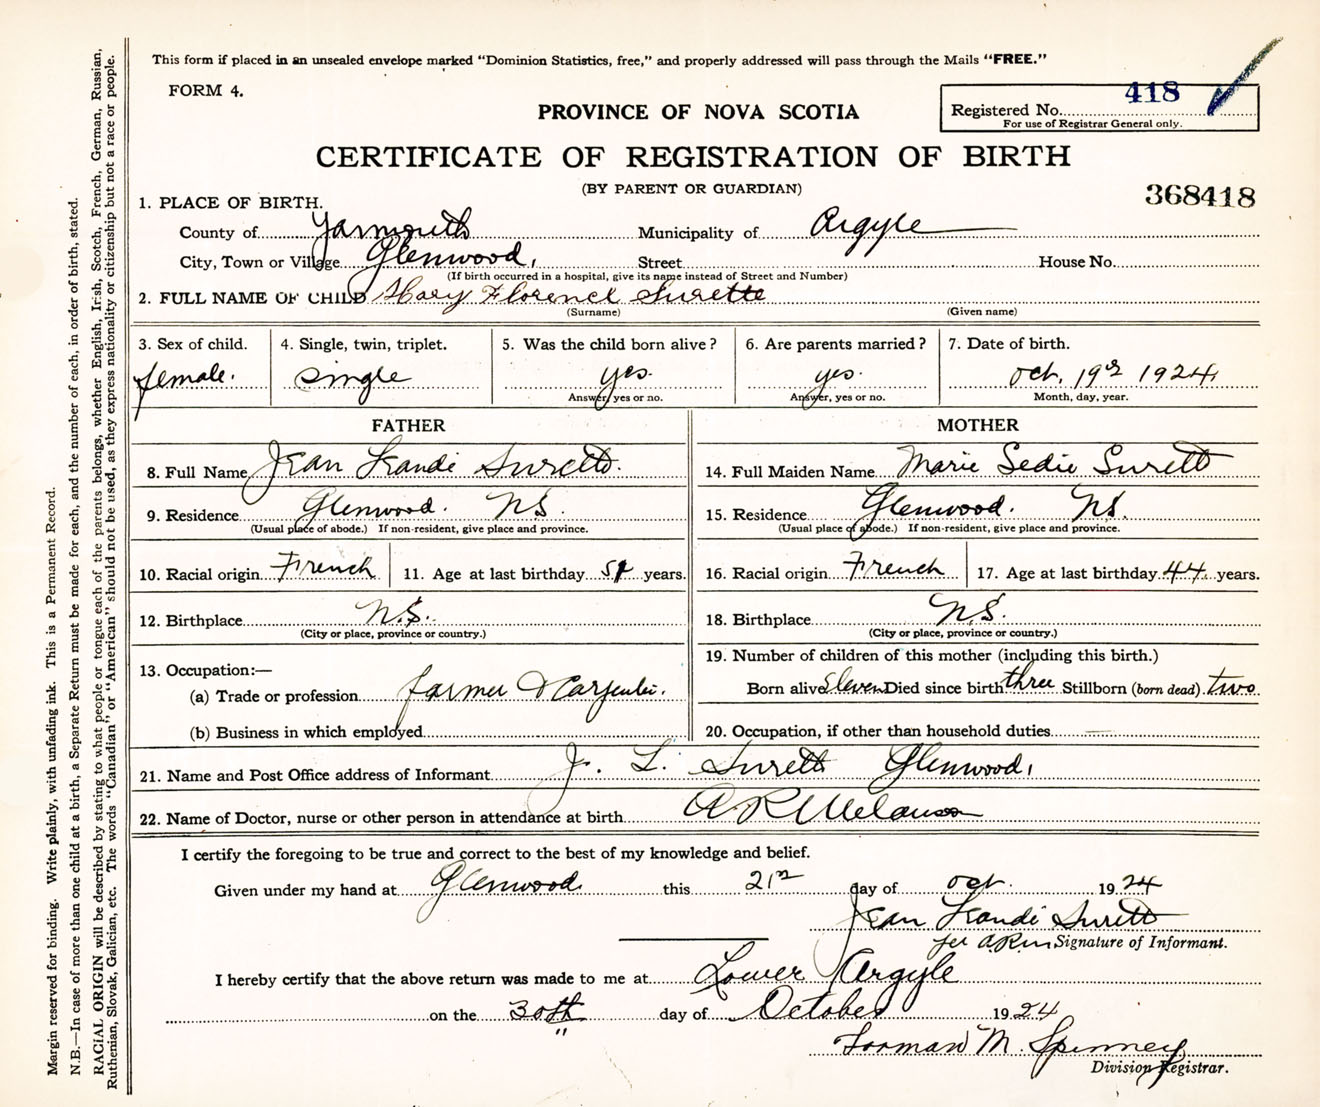 This form if placed in an unsealed envelope marked "Dominion Statistics, free," and properly addressed will pass through the Mails "FREE."
FORM 4.
PROVINCE OF NOVA SCOTIA
Registered No. 418
For use of Registrar General only.
CERTIFICATE OF REGISTRATION OF BIRTH
(BY PARENT OR GUARDIAN)
368418
1. PLACE OF BIRTH.
County of Yarmouth Municipality of Argyle
City, Town or Village Glenwood, Street House No.
(If birth occurred in a hospital, give its name instead of Street and Number)
2. FULL NAME OF CHILD Mary Florence Surette
(Surname) (Given name)
3. Sex of child. 4. Single, twin, triplet. 5. Was the child born alive? 6. Are parents married? 7. Date of birth.
female. single yes. yes. Oct. 19 1924
Answer, yes or no. Answer, yes or no. Month, day, year.
FATHER MOTHER
8. Full Name Jean Leande Surette. 14. Full Maiden Name Marie Sedie Surett
9. Residence Glenwood. N.S. 15. Residence Glenwood. N.S.
(Usual place of abode.) If non-resident, give place and province. (Usual place of abode.) If non-resident, give place and province.
10. Racial origin French 11. Age at last birthday 51 years. 16. Racial origin French 17. Age at last birthday 44 years.
12. Birthplace N.S. 18. Birthplace N.S.
(City or place, province or country.) (City or place, province or country.)
13. Occupation:— 19. Number of children of this mother (including this birth.)
(a) Trade or profession farmer & Carpenter. Born alive Eleven Died since birth three Stillborn (born dead) two
(b) Business in which employed 20. Occupation, if other than household duties
21. Name and Post Office address of Informant J. L. Surett Glenwood,
22. Name of Doctor, nurse or other person in attendance at birth A R Melanson
I certify the foregoing to be true and correct to the best of my knowledge and belief.
Given under my hand at Glenwood this 21 day of Oct. 1924
Jean Leandé Surett
per A.R.M Signature of Informant.
I hereby certify that the above return was made to me at Lower Argyle
on the 30th day of October 1924
Forman M. Spinney
Division Registrar.
Margin reserved for binding. Write plainly, with unfading ink. This is a Permanent Record.
N.B.—In case of more than one child at a birth, a Separate Return must be made for each, and the number of each, in order of birth, stated.
RACIAL ORIGIN will be described by stating to what people or tongue each of the parents belongs, whether English, Irish, Scotch, French, German, Russian,
Ruthenian, Slovak, Galician, etc. The words "Canadian" or "American" should not be used, as they express nationality or citizenship but not a race or people.